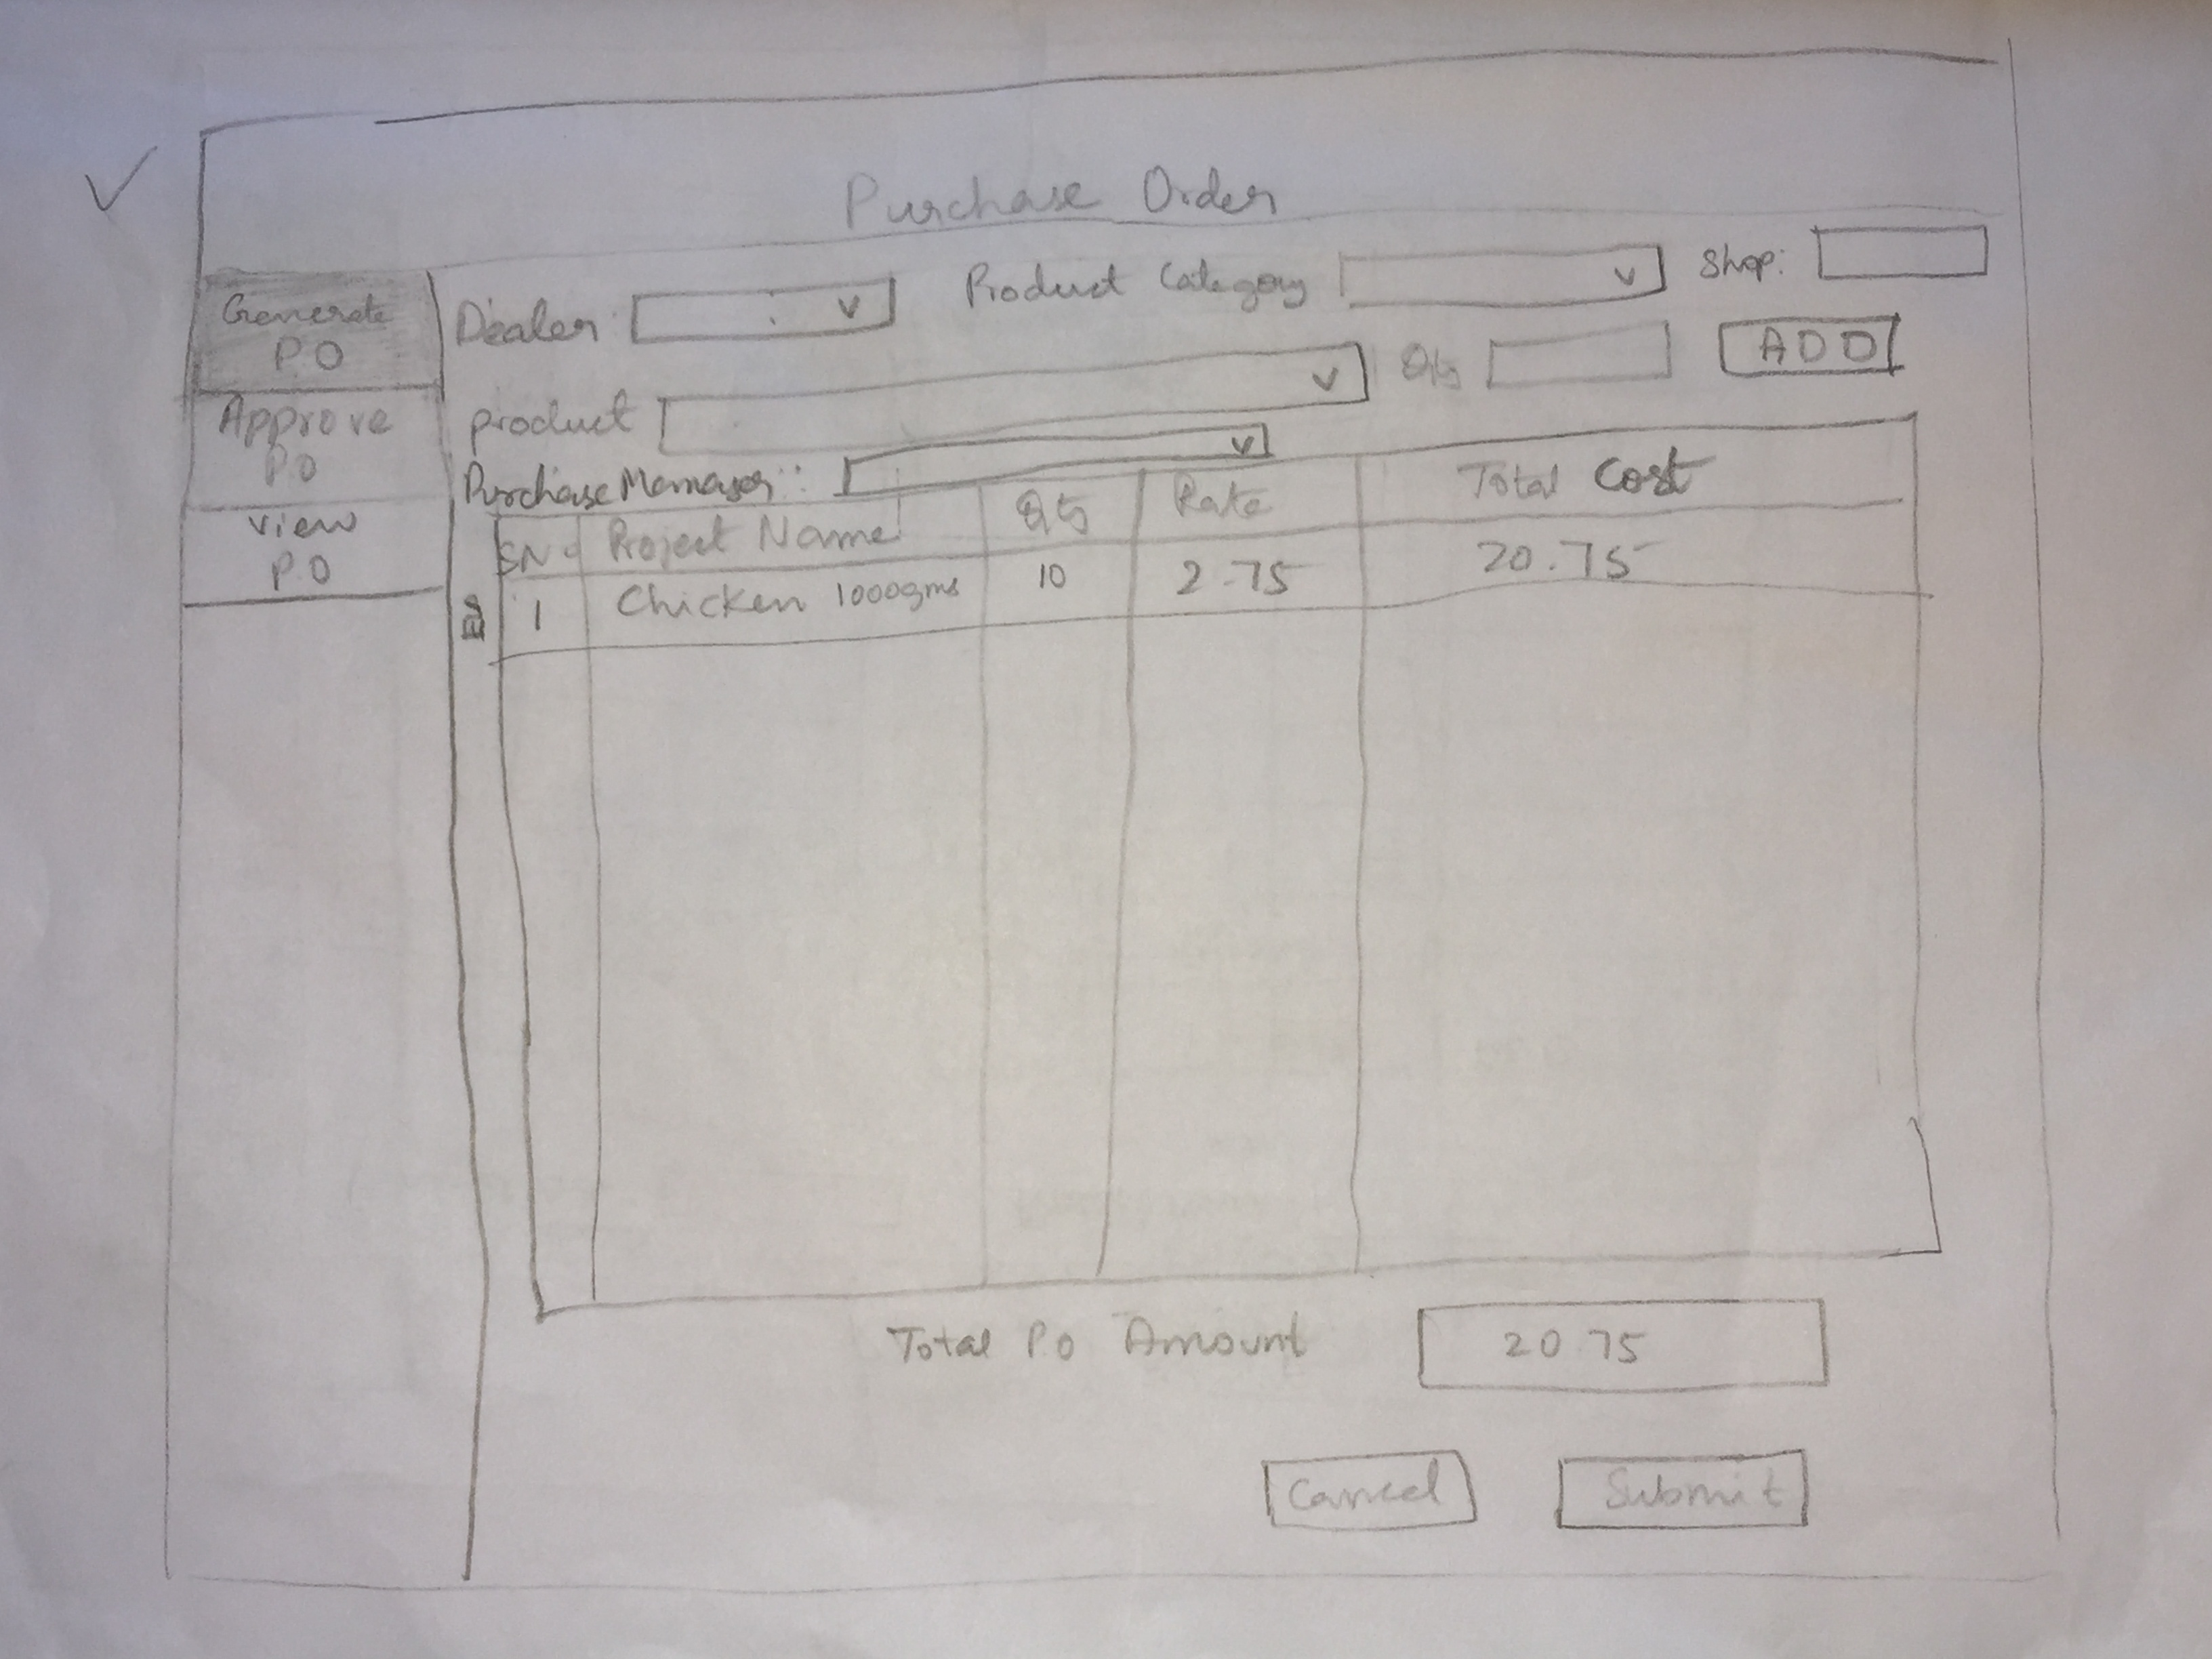 Purchase Order
Generate
PO
Approve
PO
View
PO
Dealer
Product Category
Shop:
product
Qty
ADD
Purchase Manager:
SNo Project Name Qty Rate Total Cost
1 Chicken 1000gms 10 2.75 20.75
Total PO Amount 20.75
Cancel Submit